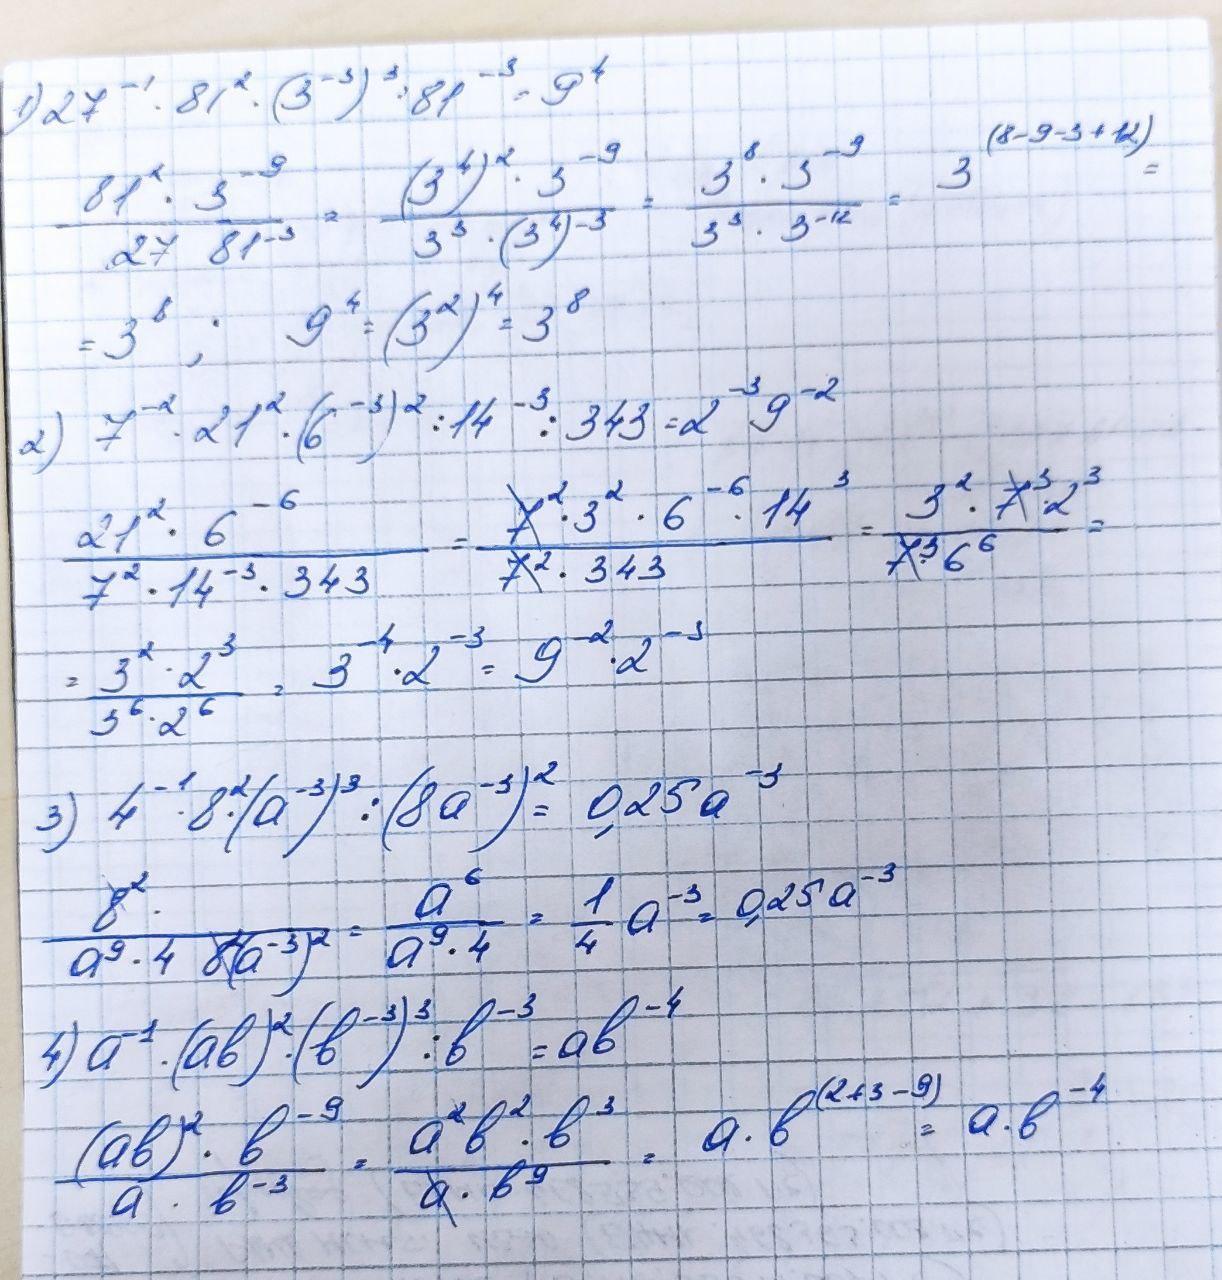 1) 27⁻¹ · 81² · (3⁻³)³ : 81⁻³ = 9⁴
81² · 3⁻⁹ / 27 81⁻³ = (3⁴)² · 3⁻⁹ / 3³ · (3⁴)⁻³ = 3⁸ · 3⁻⁹ / 3³ · 3⁻¹² = 3⁽⁸⁻⁹⁻³⁺¹²⁾ =
= 3⁸ ; 9⁴ = (3²)⁴ = 3⁸
2) 7⁻² · 21² · (6⁻³)² : 14⁻³ : 343 = 2⁻³ 9⁻²
21² · 6⁻⁶ / 7² · 14⁻³ · 343 = 7² · 3² · 6⁻⁶ · 14³ / 7² · 343 = 3² · 7³ · 2³ / 7³ · 6⁶ =
= 3² · 2³ / 3⁶ · 2⁶ = 3⁻⁴ · 2⁻³ = 9⁻² · 2⁻³
3) 4⁻¹ · 8² · (a⁻³)³ : (8a⁻³)² = 0,25a⁻³
8² · / a⁹ · 4 8(a⁻³)² = a⁶ / a⁹ · 4 = 1/4 a⁻³ = 0,25a⁻³
4) a⁻¹ · (ab)² · (b⁻³)³ : b⁻³ = ab⁻⁴
(ab)² · b⁻⁹ / a · b⁻³ = a²b² · b³ / a · b⁹ = a · b⁽²⁺³⁻⁹⁾ = a · b⁻⁴